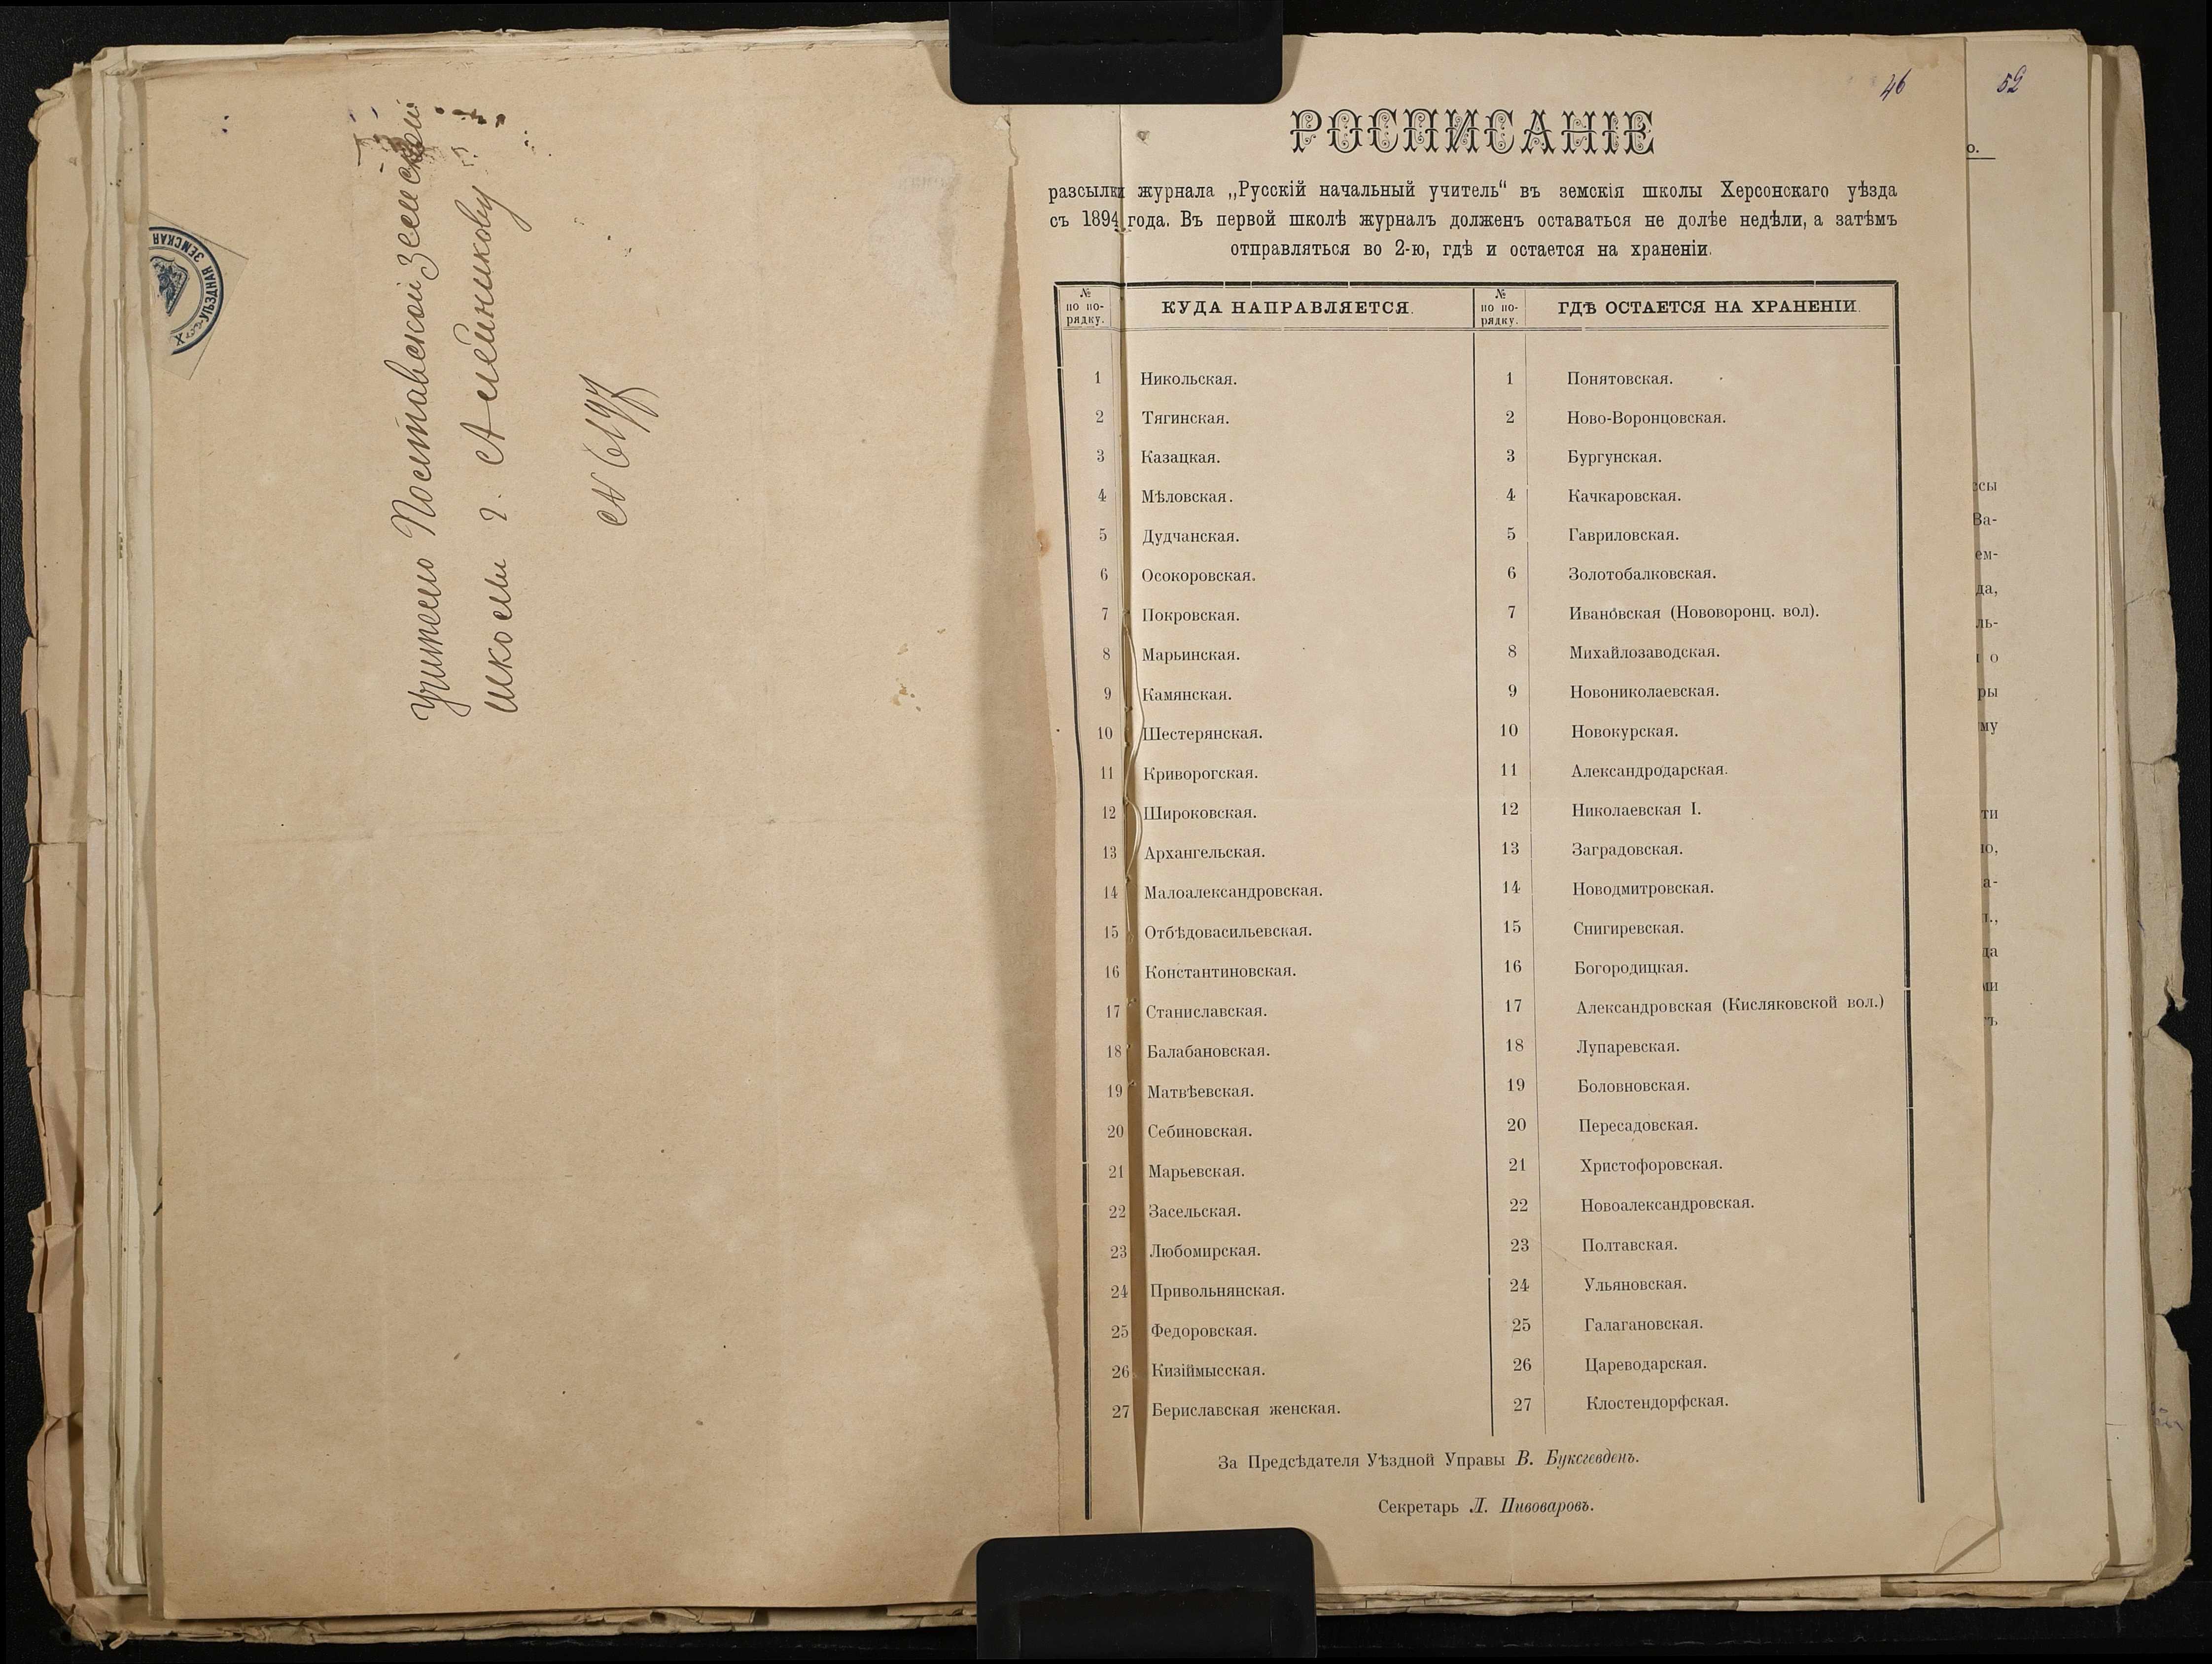 Учителю Полтавской Земской
школы г. Алейникову
№ 6197
УѢЗДНАЯ ЗЕМСКАЯ
46
52
РОСПИСАНІЕ
разсылки журнала „Русскій начальный учитель“ въ земскія школы Херсонскаго уѣзда
съ 1894 года. Въ первой школѣ журналъ долженъ оставаться не долѣе недѣли, а затѣмъ
отправляться во 2-ю, гдѣ и остается на храненіи.
№ по по-рядку. КУДА НАПРАВЛЯЕТСЯ. № по по-рядку. ГДѢ ОСТАЕТСЯ НА ХРАНЕНІИ.
1 Никольская. 1 Понятовская.
2 Тягинская. 2 Ново-Воронцовская.
3 Казацкая. 3 Бургунская.
4 Мѣловская. 4 Качкаровская.
5 Дудчанская. 5 Гавриловская.
6 Осокоровская. 6 Золотобалковская.
7 Покровская. 7 Ивановская (Нововоронц. вол).
8 Марьинская. 8 Михайлозаводская.
9 Камянская. 9 Новониколаевская.
10 Шестерянская. 10 Новокурская.
11 Криворогская. 11 Александродарская.
12 Широковская. 12 Николаевская I.
13 Архангельская. 13 Заградовская.
14 Малоалександровская. 14 Новодмитровская.
15 Отбѣдовасильевская. 15 Снигиревская.
16 Константиновская. 16 Богородицкая.
17 Станиславская. 17 Александровская (Кисляковской вол.)
18 Балабановская. 18 Лупаревская.
19 Матвѣевская. 19 Боловновская.
20 Себиновская. 20 Пересадовская.
21 Марьевская. 21 Христофоровская.
22 Засельская. 22 Новоалександровская.
23 Любомирская. 23 Полтавская.
24 Привольнянская. 24 Ульяновская.
25 Федоровская. 25 Галагановская.
26 Кизіймысская. 26 Цареводарская.
27 Бериславская женская. 27 Клостендорфская.
За Предсѣдателя Уѣздной Управы В. Буксгевденъ.
Секретарь Л. Пивоваровъ.